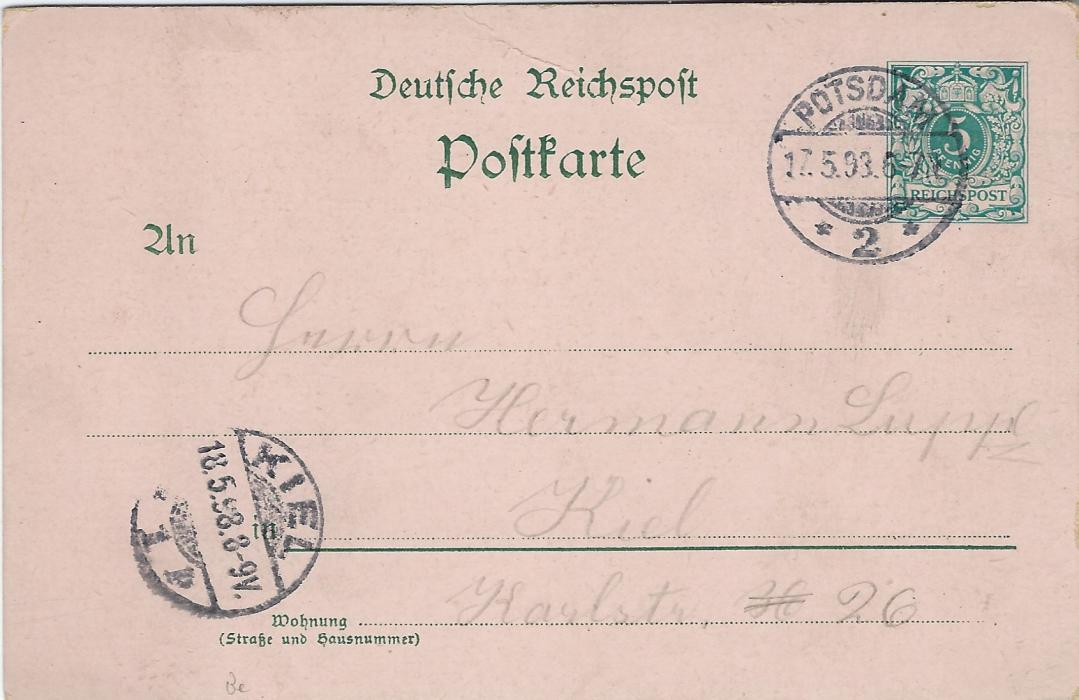 Deutsche Reichspost
Postkarte
POTSDAM
17.5.98.
* 2 *
5
PFENNIG
REICHSPOST
An
Herrn
Hermann Luppe
in Kiel
Karlstr. 26
KIEL
18.5.98.8-9V.
1
Wohnung
(Straße und Hausnummer)
Be